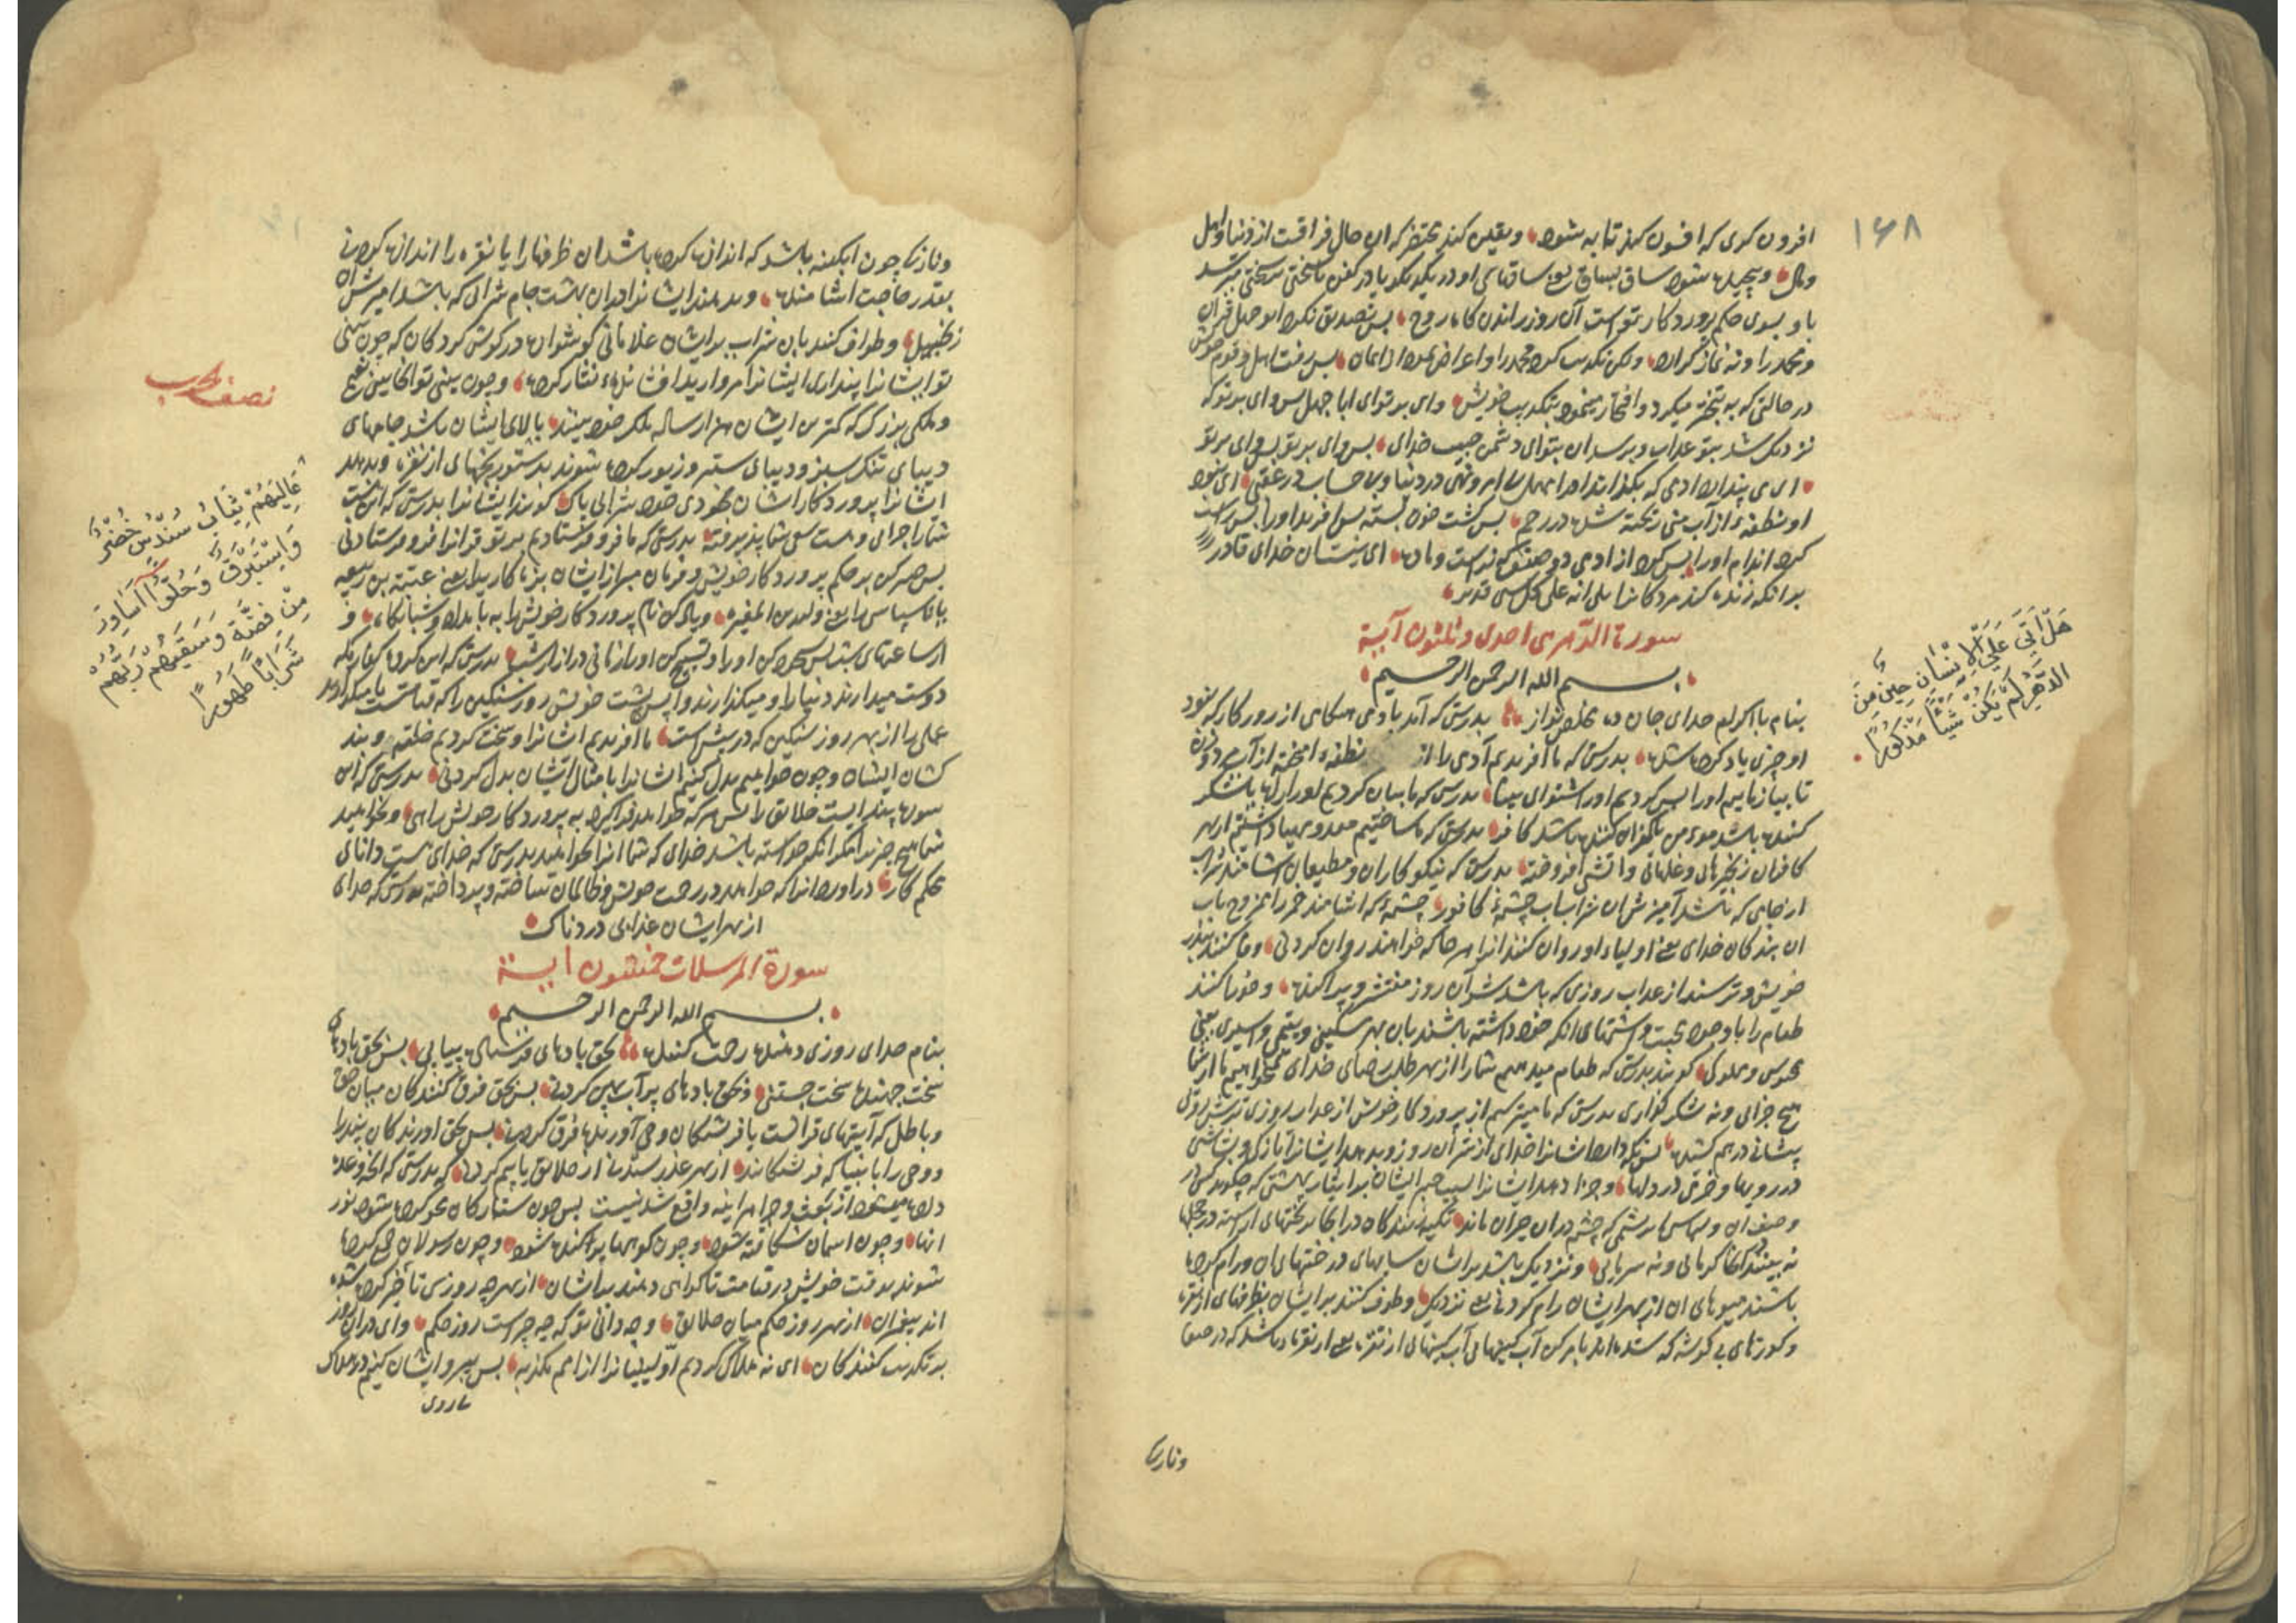 ۱۶۸
افزون کری که افسون کند تا به شود و یقین کند محتضر که این حال فراقت از دنیا و اهل
ومال وپیچیده شود ساق بساق یعنی ساقهای او در یکدیکر یا در کفن یا سختی بسختی برسد
با و بسوی حکم پرورد کار تو است آن روز راندن کاه روح پس تصدیق نکرد ابو جهل قران
ومحمد را و نه نماز کزارد ولکن تکذیب کرد محمد را و اعراض نمود از ایمان پس رفت باهل وقوم خویش
در حالتی که به تبختر میکرد وافتخار مینمود بتکذیب خویش وای بر تو ای ابا جهل پس وای بر تو که
نزدیک شد بتو عذاب وبرسد ان بتو ای دشمن حبیب خدای پس وای بر تو پس وای بر تو
ای می پندارد ادمی که بکذارند او را مهمل بی امر ونهی در دنیا وبی حساب در عقبی ای نبود
او نطفهٔ از آب منی ریخته شده در رحم پس کشت خون بسته پس افرید او را پس راست
کرد اندام او را پس کرد از ادمی دو صنف که نر است وماده ای نیست ان خدای قادر
بر انکه زنده کند مرد کانرا بلی انه علی کل شی قدیر
سورة الدّهر هی احدی وثلثون آیة
بسم الله الرحمن الرحیم
بنام با اکرام خدای جان ده مخلص نواز بدرستی که آمد بادمی هنکامی از روزکار که نبود
او چیزی یاد کرده شده بدرستی که ما آفریدیم آدمی را از نطفهٔ امیخته از آب مرد وزن
تا بیازماییم او را پس کردیم او را شنوای بینا بدرستی که ما بیان کردیم او را راه یا شکر
کننده باشد مومن یا کفران کننده باشد کافر بدرستی که ما ساختیم ومهیا داشتیم از بهر
کافران زنجیرهایی وغلهایی واتشی افروخته بدرستی که نیکو کاران ومطیعان اشامند شراب
از جامی که باشد آمیزش ان شراب باب چشمهٔ کافور چشمهٔ که اشامند خمر را ممزوج باب
ان بندکان خدای یعنی اولیاء او روان کنند انرا هر جا که خواهند روان کردنی وفا کنند بنذر
خویش وترسند از عذاب روزی که باشد شر آن روز منتشر وپراکنده وخورانند
طعام را با وجود محبت واشتهای انکه خود داشته باشند بان بهر مسکینی ویتیمی واسیری یعنی
محبوس ومملوکی کویند بدرستی که طعام میدهیم شما را از بهر طلب رضای خدای نمیخواهیم ما از شما
هیچ جزایی ونه شکر کزاری بدرستی که ما میترسیم از پرورد کار خویش از عذاب روزی ترش روی
پیشانی درهم کشیده پس نکه دارد اشانرا خدای از شر آن روز وبدهد ایشانرا تازکی وبشاشتی
در رویها وخرمی در دلها وجزا دهد ایشانرا بسبب صبر ایشان بر ایثار بهشتی که چکوید کس در
وصف ان ولباس ابریشمی که چشم در ان حیران ماند تکیه کنندکان در انجا بر تختهای اراسته در حجلها
نه بینند در انجا کرمایی ونه سرمایی ونزدیک باشد بر ایشان سایهای درختهای ان ورام کرده
باشند میوهای ان از بهر ایشان رام کردنی یعنی نزدیک وطوف کنند بر ایشان بظرفهای از نقره
وکوزهای بی کوشه که شده اند یا برکن آب کینهایی آب کینهایی از نقره یعنی از نقره باشد که در صفا
ونازکی
هَلْ اَتَی عَلَی الْاِنْسَانِ حِینٌ مِنَ
الدَّهْرِ لَمْ یَکُنْ شَیْئًا مَذْکُورًا
ونازکی چون ابکینه باشد که اندازه کرده باشد ان ظرفها را یا نقره را اندازه کردنی
بقدر حاجت اشامنده وبدهند ایشانرا در ان بهشت جام شرابی که باشد امیزش ان
زنجبیل وطواف کنند بان شراب بر ایشان غلامانی کوشواره در کوش کردکان که چون بینی
تو ایشانرا پنداری ایشانرا مروارید افشانده ونثار کرده وچون بینی تو انجا بینی نعیم
وملکی بزرک که کمترین ایشان هزار ساله ملک خود بیند بالای ایشان باشد جامهای
دیبای تنک سبز ودیبای ستبر وزیور کرده شوند بدستور نجهای از نقره وبدهد
اشانرا پرورد کار اشان بخودی خود شرابی پاک کویند ایشانرا بدرستی که این هست
شما را جزای وهست سعی شما پذیرفته بدرستی که ما فرو فرستادیم بر تو قرانرا فرو فرستادنی
پس صبر کن بر حکم پرورد کار خویش وفرمان مبر از ایشان بزه کاریرا یعنی عتبة بن ربیعه
یا ناسپاسی را یعنی ولید بن المغیره ویاد کن نام پرورد کار خویش را به بامداد وشبانکاه و
از ساعتهای شب پس سجده کن او را وتسبیح کن او را زمانی دراز از شب بدرستی که این کروه کفار مکه
دوست میدارند دنیا را ومیکذارند وا پس پشت خویش روز سنکین را که قیامت
عملی را از بهر روز سنکین که در پیش است ما افریدیم اشانرا وسخت کردیم خلقت وبند
کشان ایشان وچون خواهیم بدل کنیم اشانرا با مثال ایشان بدل کردنی بدرستی که این
سوره پندایست خلائق را پس هر که خواهد فرا کیرد به پرورد کار خویش راهی ونخواهید
شما هیچ چیز را مکر انکه خواسته باشد خدای که شما انرا بخواهید بدرستی که خدای هست دانای
محکم کار در آورد انرا که خواهد در رحمت خویش وظالمان ساخته وپرداخته بدرستی که خدای
از بهر ایشان عذابی دردناک
سورة المرسلات خمسون آیة
بسم الله الرحمن الرحیم
بنام خدای روزی دهنده رحمت کننده بحق بادهای فرستاده پیاپی پس بحق بادهای
سخت جهنده سخت جستنی وبحق بادهای پر آب پهن کردنی پس بحق فرق کنندکان میان حق
وباطل که آیتهای قرانست یا فرشتکان وحی آورنده فرق کردنی پس بحق اورندکان پند را
ووحی را بانبیا که فرشتکانند از بهر عذر رسیدن از خلائق یا بیم کردنی که بدرستی که انچه وعده
داده میشود از بعث وجزا هراینه واقع شدنیست پس چون ستارکان محو کرده شود نور
انها وچون اسمان شکافته شود وچون کوهها پراکنده شود وچون رسولان جمع کرده
شوند بوقت خویش در قیامت تا کواهی دهند بر اشان از بهر چه روزی تأخیر کرده شده
اند پیغمبران از بهر روز حکم میان خلائق وچه دانی تو که چه چیز است روز حکم وای در ان روز
بر تکذیب کنندکان ای نه هلاک کردیم اوّلینیانرا از امم مکذبه پس پیرو ایشان کنیم در هلاک
نصف حزب
عَالِیَهُمْ ثِیَابُ سُنْدُسٍ خُضْرٌ
وَاِسْتَبْرَقٌ وَحُلُّوا اَسَاوِرَ
مِنْ فِضَّةٍ وَسَقَیهُمْ رَبُّهُمْ
شَرَابًا طَهُورًا